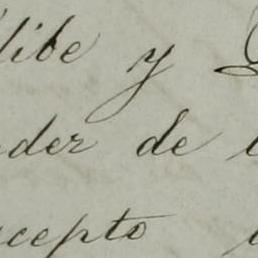 libe y
der de
cepto